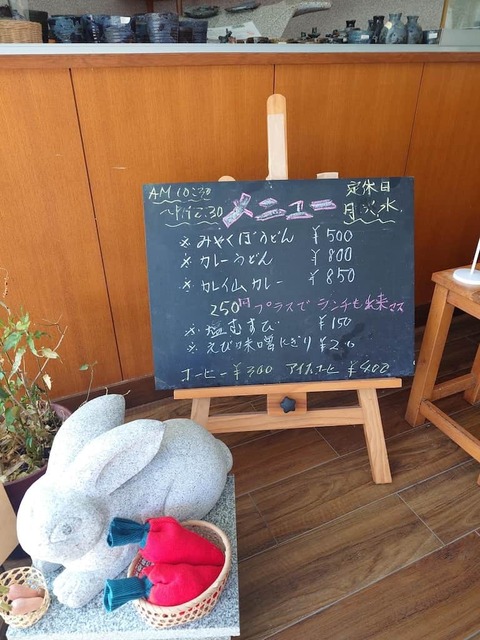 AM 10:30
メニュー
定休日
月、火、水
※ みやくぼうどん ¥500
※ カレーうどん ¥800
※ カレイムカレー ¥850
250円プラスで ランチも出来マス
※ 塩むすび ¥150
※ えび味噌にぎり
コーヒー ¥300 アイスコーヒー ¥400